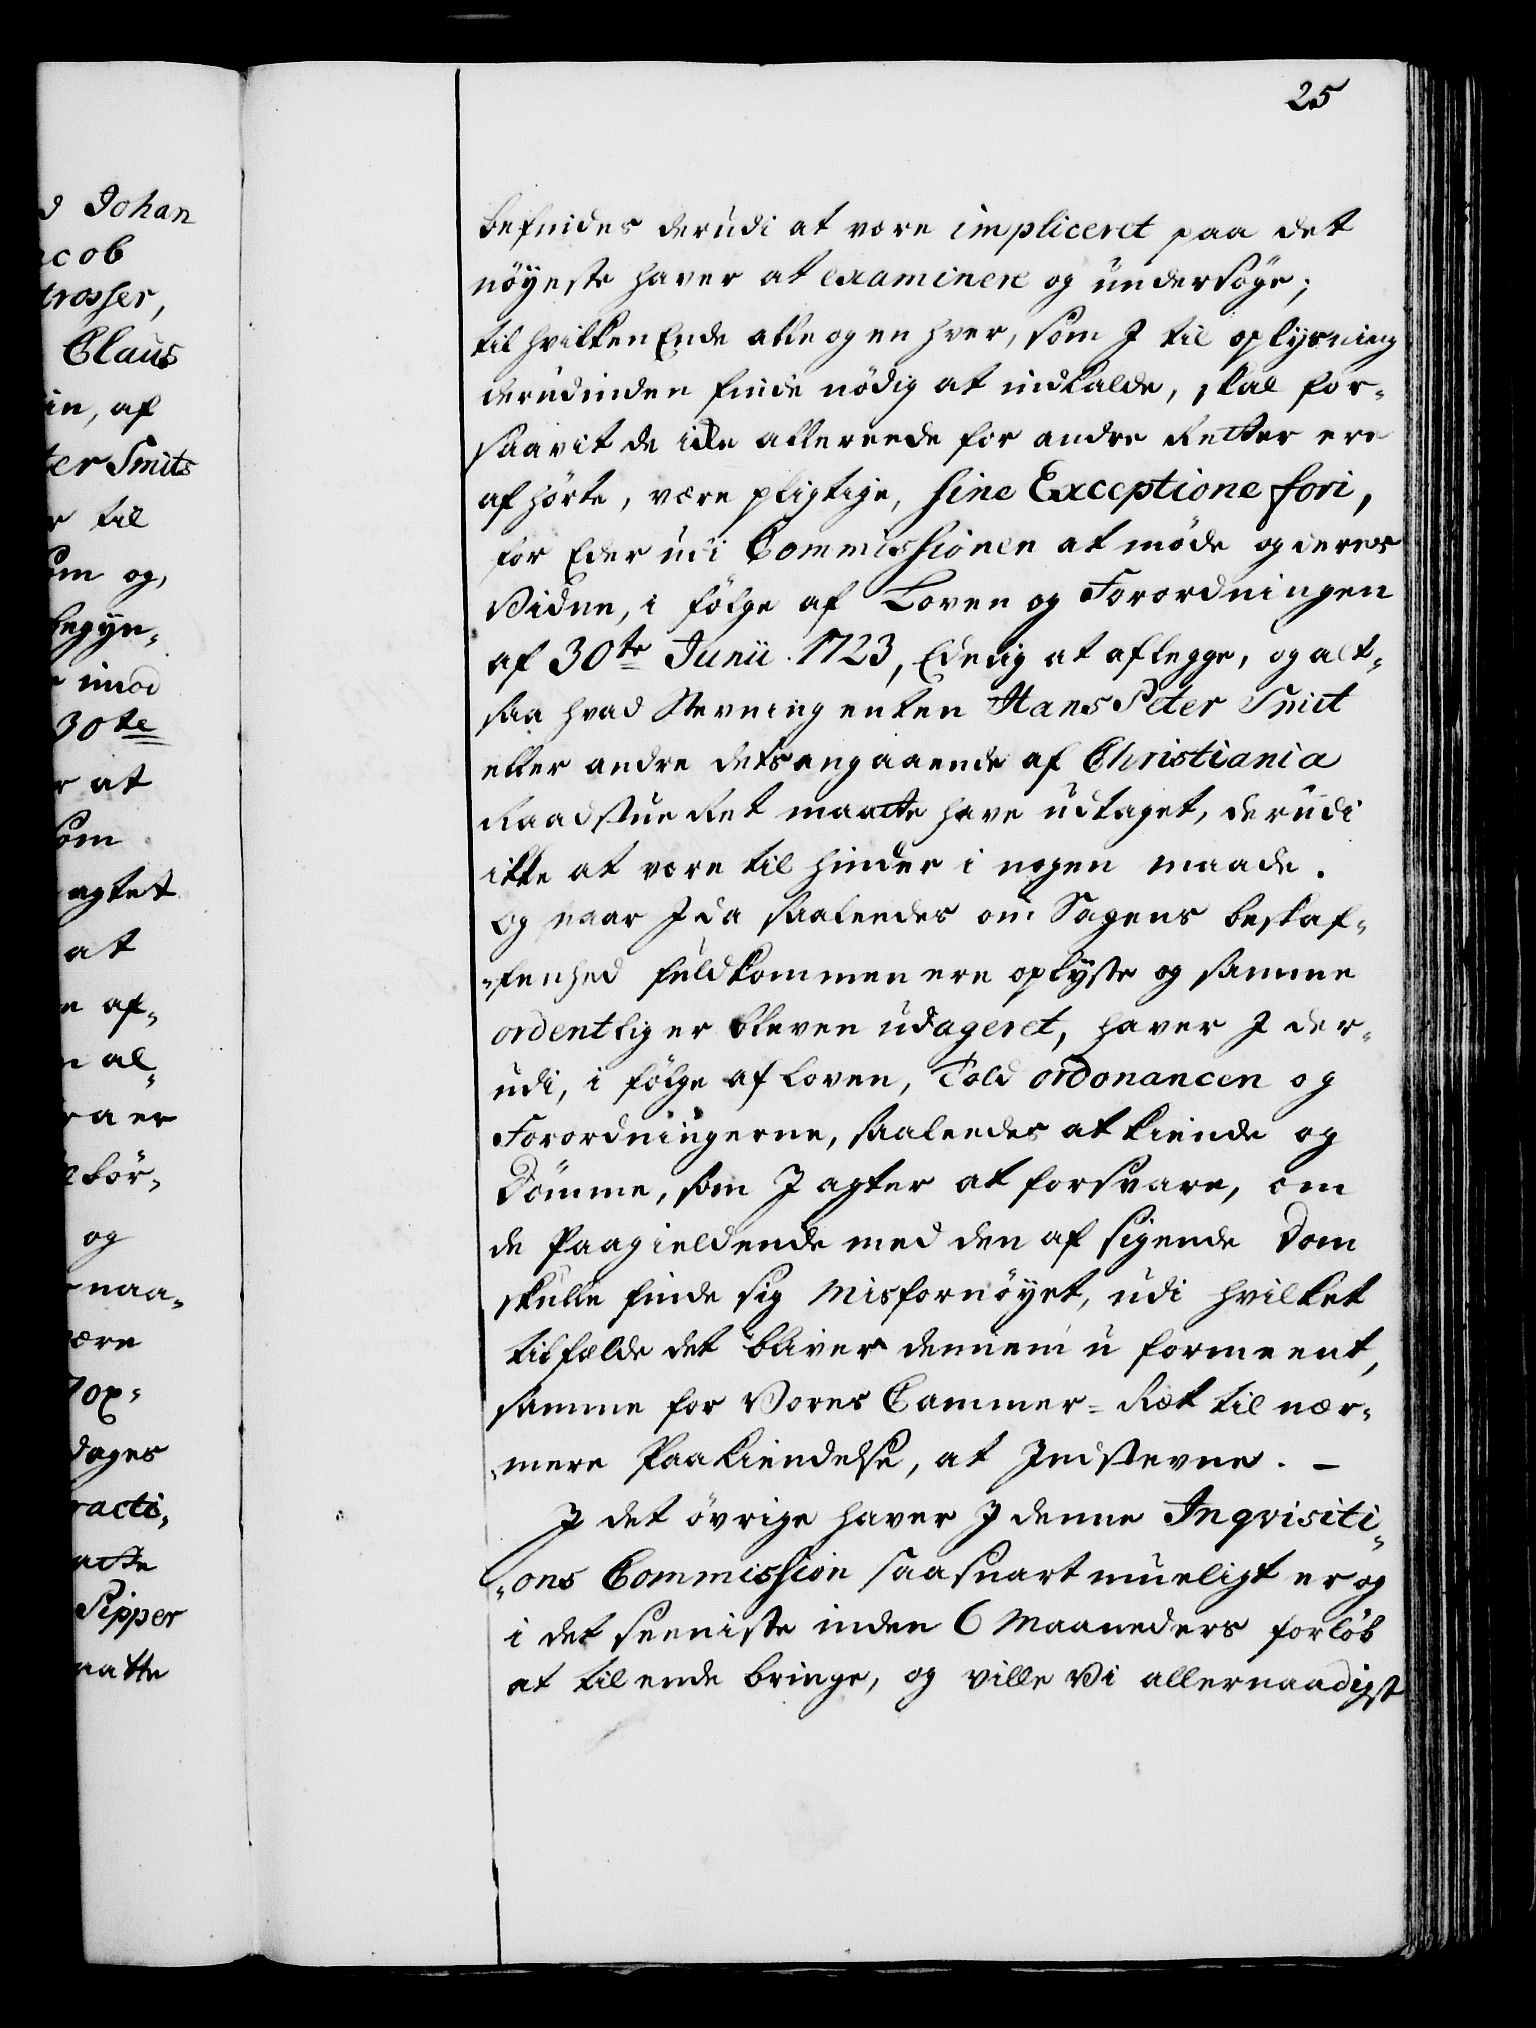 25
d Johan
acob
trosser,
Claus
in, af
ter Smits
r til
om og,
begyn-
imod
30te
r at
som
agtet
at
e af-
al-
raer
bör-
og
naa-
være
op-
dages
racti-
atte
Sipper
aatte
befindes derudi at være impliceret paa det
nöyeste haver at examinere og undersöge;
til hvilken Ende alle og en hver, som I til oplysning
derudinden finde nödig at indkalde, skal for-
saavit de icke allereede for andre Retter ere
afhörte, være pligtige, sine Exceptione fori,
for Eder udi Commissionen at möde og deres
Vidne, i fölge af Loven og Forordningen
af 30te Junii 1723, Edelig at aflegge, og alt-
saa hvad Stevning enten Hans Peter Smit
eller andre detsangaaende af Christiania
Raadstue Ret maatte have udtaget, derudi
ikke at være til hinder i nogen maade.
Og naar I da saaleedes om Sagens beskaf-
-fenhed fuldkommen ere oplyste og samme
ordentlig er bleven udageret, haver I der-
udi, i fölge af Loven, Told ordonancen og
Forordningerne, saaleedes at kiende og
Dömme, som I agter at forsvare, om
de Paagieldende med den af sigende Dom
skulle finde sig Misfornöyet, udi hvilket
tilfælde det bliver dennem u formeent,
samme for Vores Cammer=Ret til nær-
mere Paakiendelse, at Indstevne. –
I det övrige haver I denne Inqvisiti-
-ons Commission saasnart mueligt er og
i det seeniste inden 6 Maaneders forlöb
at til ende bringe, og ville Vi allernaadigst